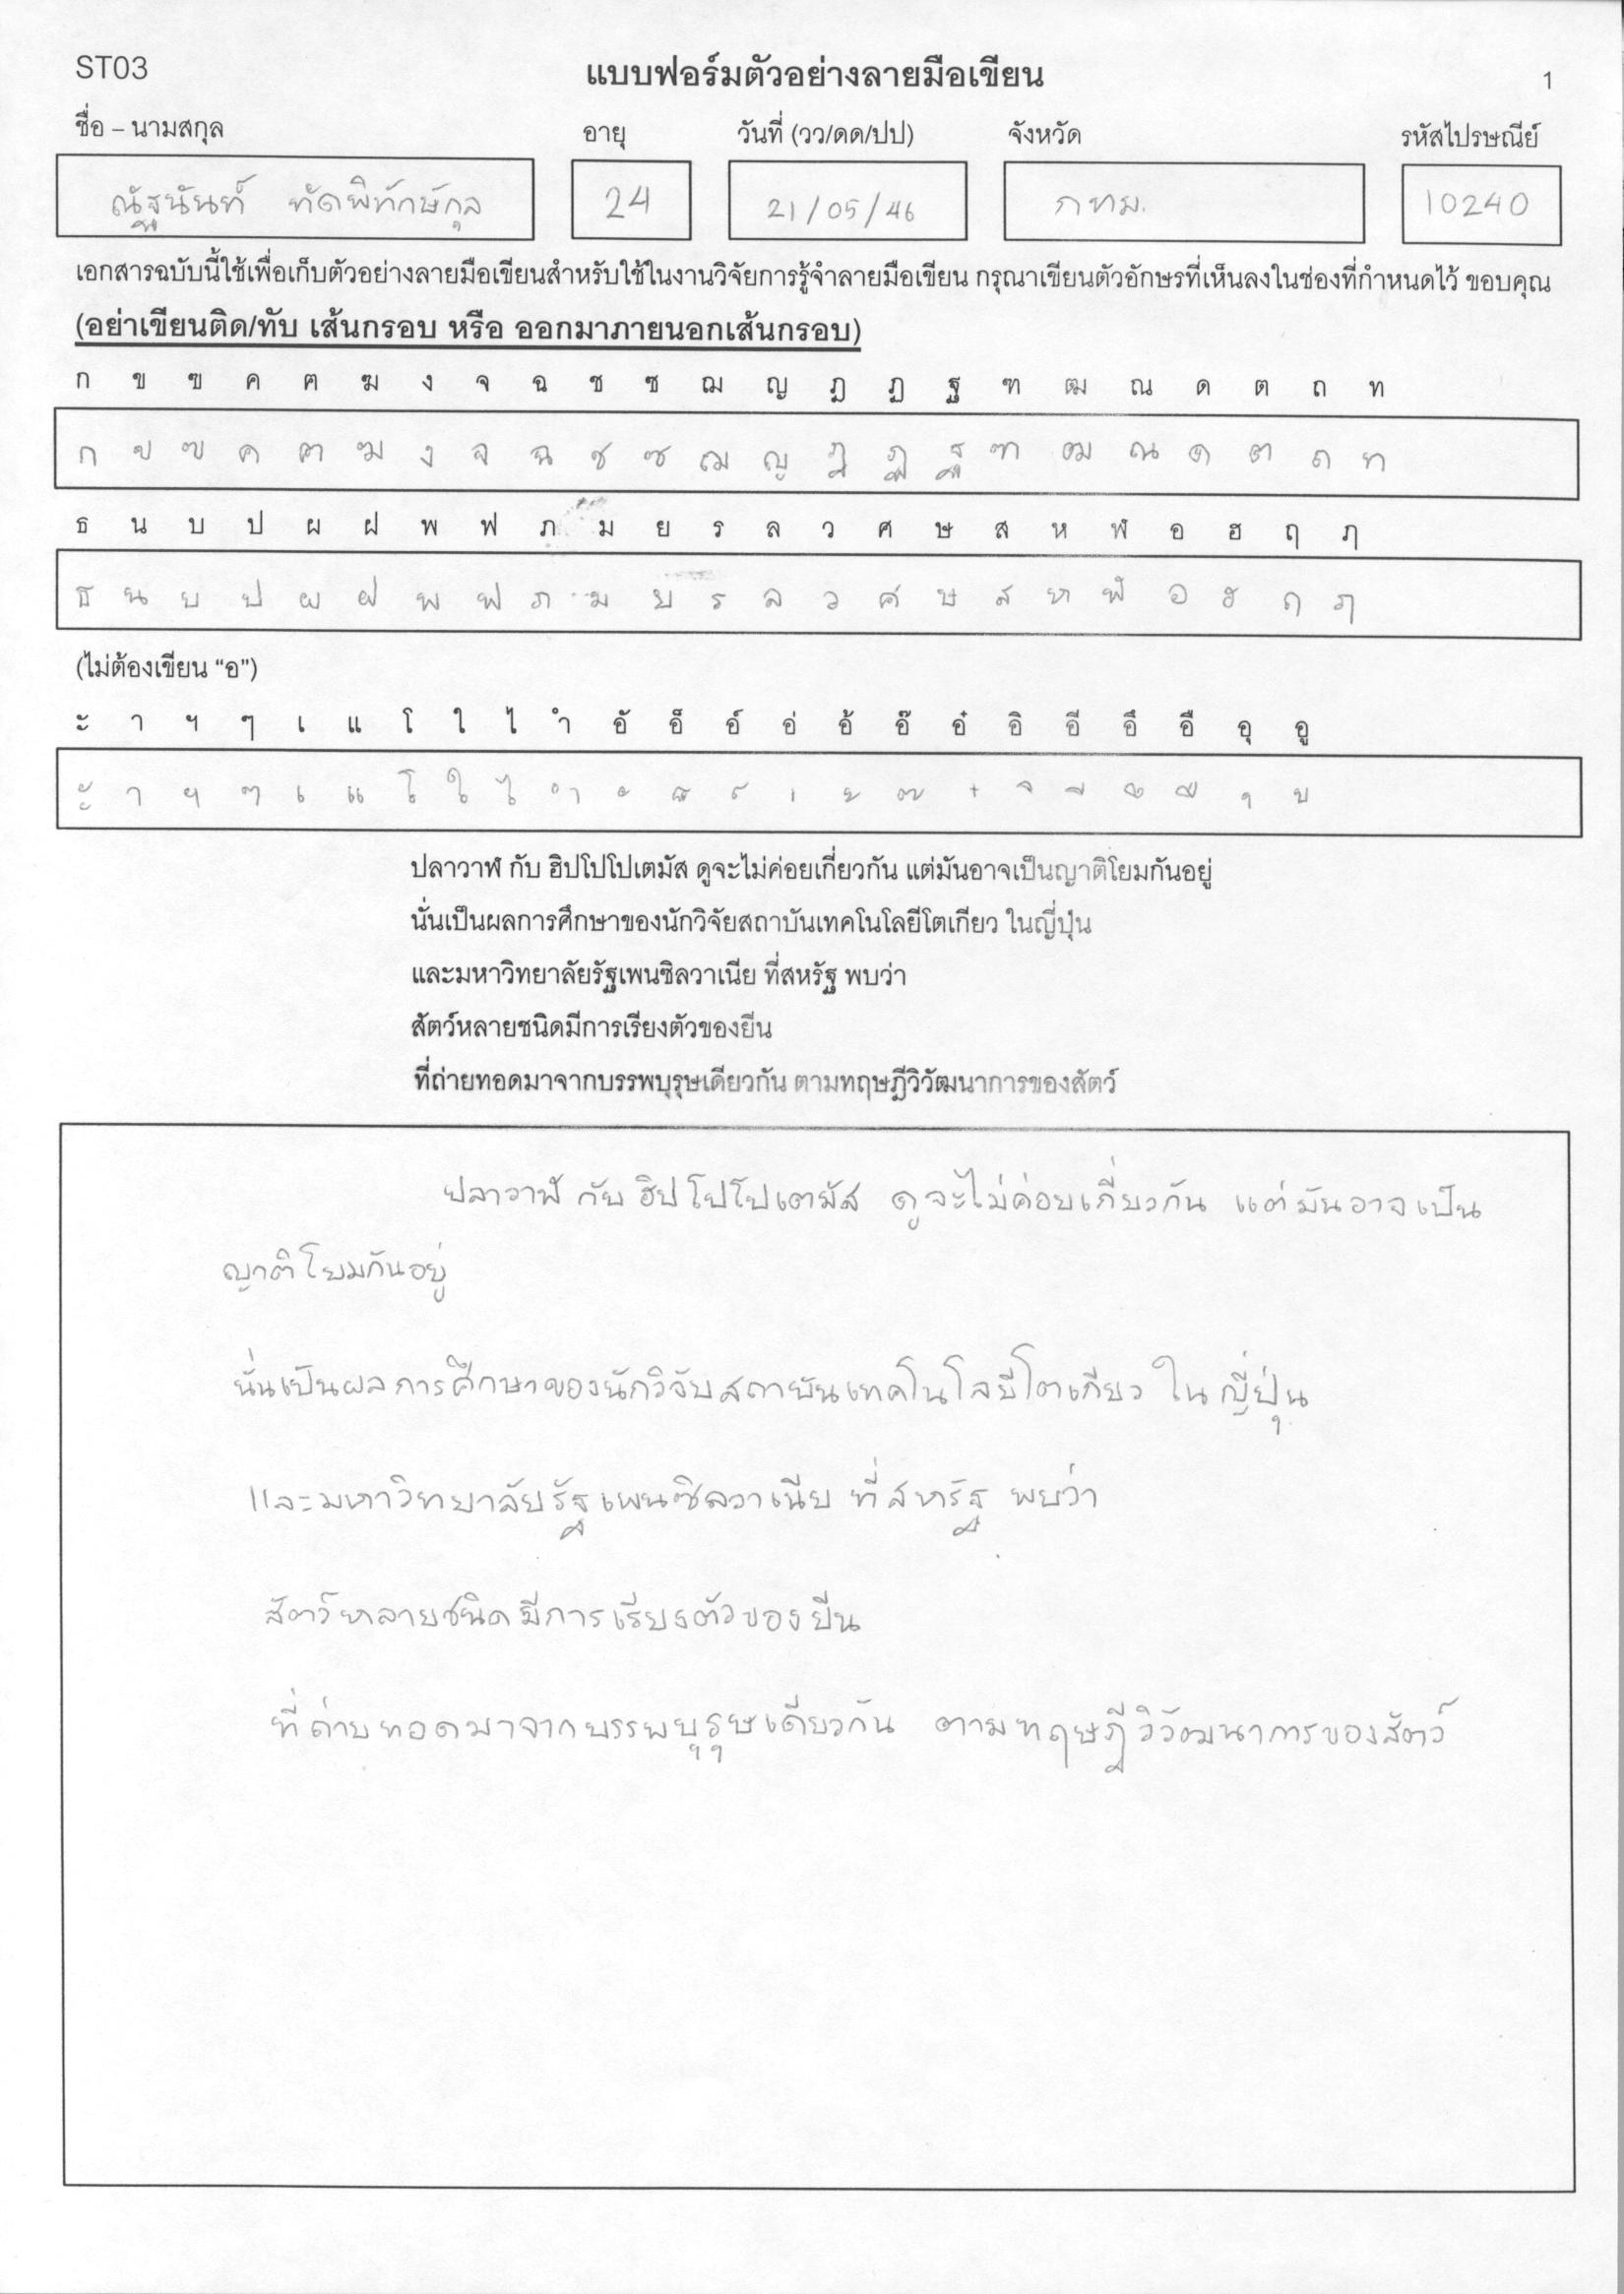 ST03 แบบฟอร์มตัวอย่างลายมือเขียน 1
ชื่อ – นามสกุล อายุ วันที่ (วว/ดด/ปป) จังหวัด รหัสไปรษณีย์
ณัฐนันท์ ทัดพิทักษ์กุล 24 21/05/46 กทม. 10240
เอกสารฉบับนี้ใช้เพื่อเก็บตัวอย่างลายมือเขียนสำหรับใช้ในงานวิจัยการรู้จำลายมือเขียน กรุณาเขียนตัวอักษรที่เห็นลงในช่องที่กำหนดไว้ ขอบคุณ
(อย่าเขียนติด/ทับ เส้นกรอบ หรือ ออกมาภายนอกเส้นกรอบ)
ก ข ฃ ค ฅ ฆ ง จ ฉ ช ซ ฌ ญ ฎ ฏ ฐ ฑ ฒ ณ ด ต ถ ท
ก ข ฃ ค ฅ ฆ ง จ ฉ ช ซ ฌ ญ ฎ ฏ ฐ ฑ ฒ ณ ด ต ถ ท
ธ น บ ป ผ ฝ พ ฟ ภ ม ย ร ล ว ศ ษ ส ห ฬ อ ฮ ฤ ฦ
ธ น บ ป ผ ฝ พ ฟ ภ ม ย ร ล ว ศ ษ ส ห ฬ อ ฮ ฤ ฦ
(ไม่ต้องเขียน “อ”)
ะ า ฯ ๆ เ แ โ ใ ไ ำ อั อ็ อ์ อ่ อ้ อ๊ อ๋ อิ อี อึ อื อุ อู
ะ า ฯ ๆ เ แ โ ใ ไ ำ ั ็ ์ ่ ้ ๊ ๋ ิ ี ึ ื ุ ู
ปลาวาฬ กับ ฮิปโปโปเตมัส ดูจะไม่ค่อยเกี่ยวกัน แต่มันอาจเป็นญาติโยมกันอยู่
นั่นเป็นผลการศึกษาของนักวิจัยสถาบันเทคโนโลยีโตเกียว ในญี่ปุ่น
และมหาวิทยาลัยรัฐเพนซิลวาเนีย ที่สหรัฐ พบว่า
สัตว์หลายชนิดมีการเรียงตัวของยีน
ที่ถ่ายทอดมาจากบรรพบุรุษเดียวกัน ตามทฤษฎีวิวัฒนาการของสัตว์
ปลาวาฬ กับ ฮิปโปโปเตมัส ดูจะไม่ค่อยเกี่ยวกัน แต่มันอาจเป็น
ญาติโยมกันอยู่
นั่นเป็นผลการศึกษาของนักวิจัยสถาบันเทคโนโลยีโตเกียว ในญี่ปุ่น
และมหาวิทยาลัยรัฐเพนซิลวาเนีย ที่สหรัฐ พบว่า
สัตว์หลายชนิดมีการเรียงตัวของยีน
ที่ถ่ายทอดมาจากบรรพบุรุษเดียวกัน ตามทฤษฎีวิวัฒนาการของสัตว์